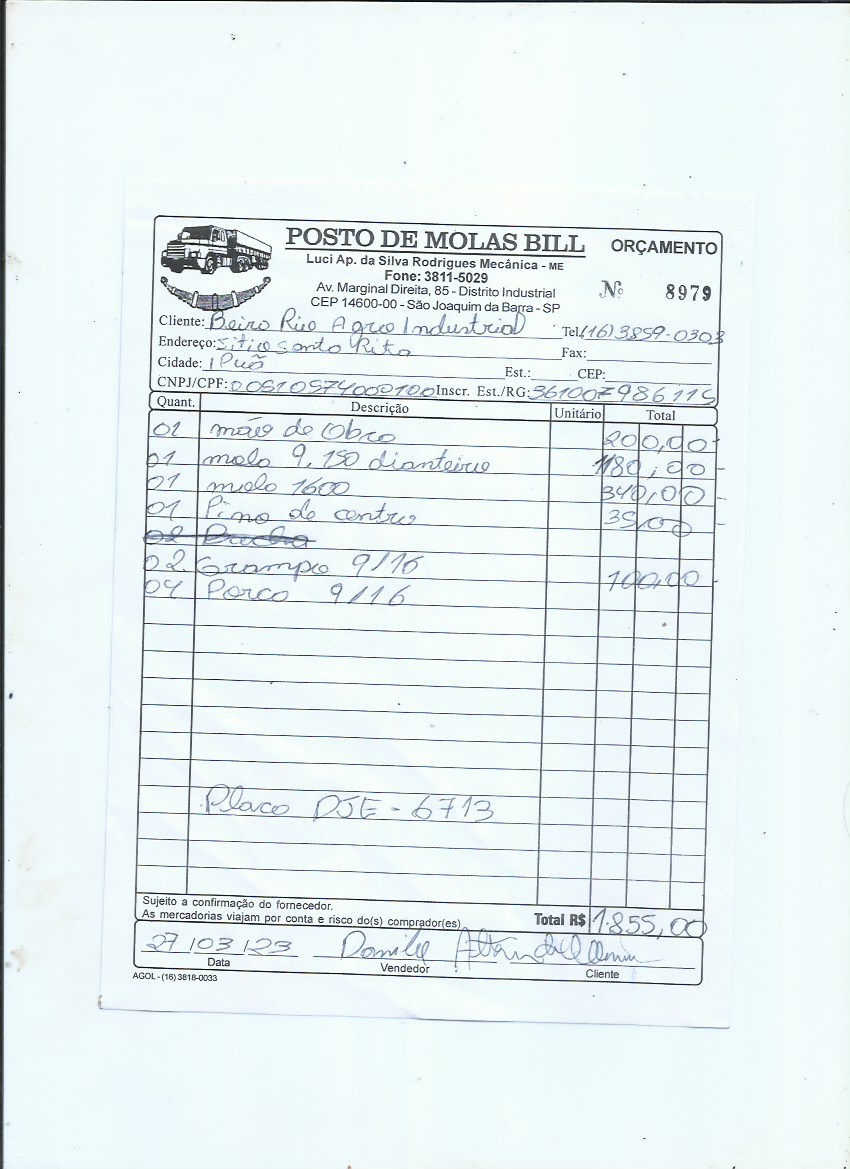 POSTO DE MOLAS BILL ORÇAMENTO
Luci Ap. da Silva Rodrigues Mecânica - ME
Fone: 3811-5029
Av. Marginal Direita, 85 - Distrito Industrial
CEP 14600-00 - São Joaquim da Barra - SP
Nº 8979
Cliente: Beira Rio Agro Industrial Tel. (16) 3859-0303
Endereço: Sitio Santa Rita Fax:
Cidade: Ipuã Est.: CEP:
CNPJ/CPF: 00510574000100 Inscr. Est./RG: 361007986115
Quant. Descrição Unitário Total
01 mão de Obra 200,00
01 mola 9.150 dianteira 1180,00
01 mola 1600 340,00
01 Pino de centro 35,00
02 Bucha
02 Grampo 9/16 100,00
04 Porca 9/16
Placa DJE - 6713
Sujeito a confirmação do fornecedor.
As mercadorias viajam por conta e risco do(s) comprador(es) Total R$ 1.855,00
27/03/23 Danilo
Data Vendedor Cliente
AGOL - (16) 3818-0033